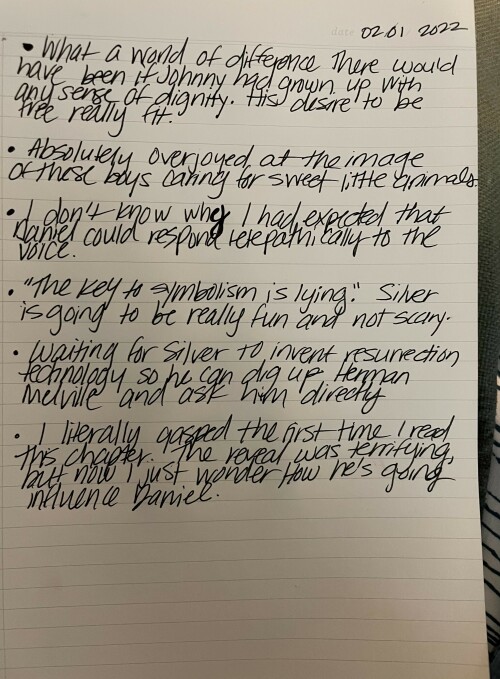 date 02.01 2022
• What a world of difference There would
have been if Johnny had grown up with
any sense of dignity. His desire to be
free really fit.
• Absolutely overjoyed at the image
of these boys caring for sweet little animals.
• I don't know why I had expected that
Daniel could respond telepathically to the
voice.
• "The key to symbolism is lying." Silver
is going to be really fun and not scary.
• Waiting for Silver to invent resurrection
technology so he can dig up Herman
Melville and ask him directly
• I literally gasped the first time I read
this chapter. The reveal was terrifying,
but now I just wonder how he's going
influence Daniel.